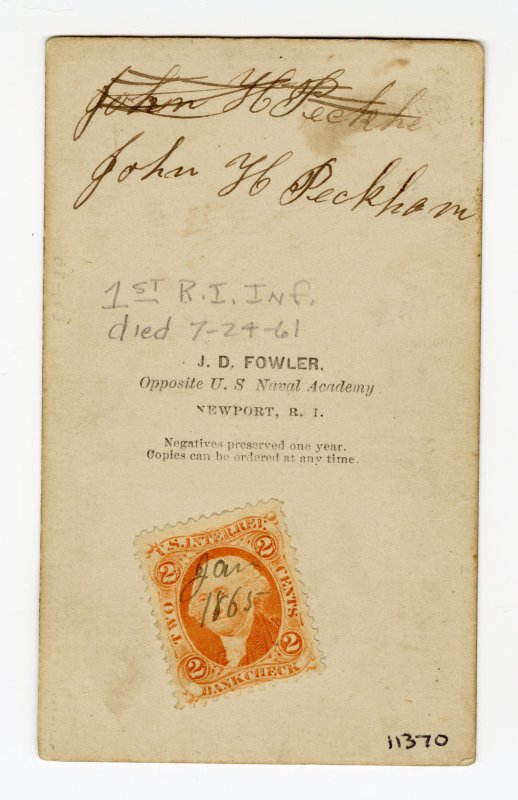 John H Peckha
John H Peckham
1ST R.I. INF.
died 7-24-61
J. D. FOWLER,
Opposite U. S Naval Academy
NEWPORT, R. I.
Negatives preserved one year.
Copies can be ordered at any time.
U.S. INTER. REV.
2 2
TWO CENTS
Jan
1865
2 2
BANK CHECK
11370